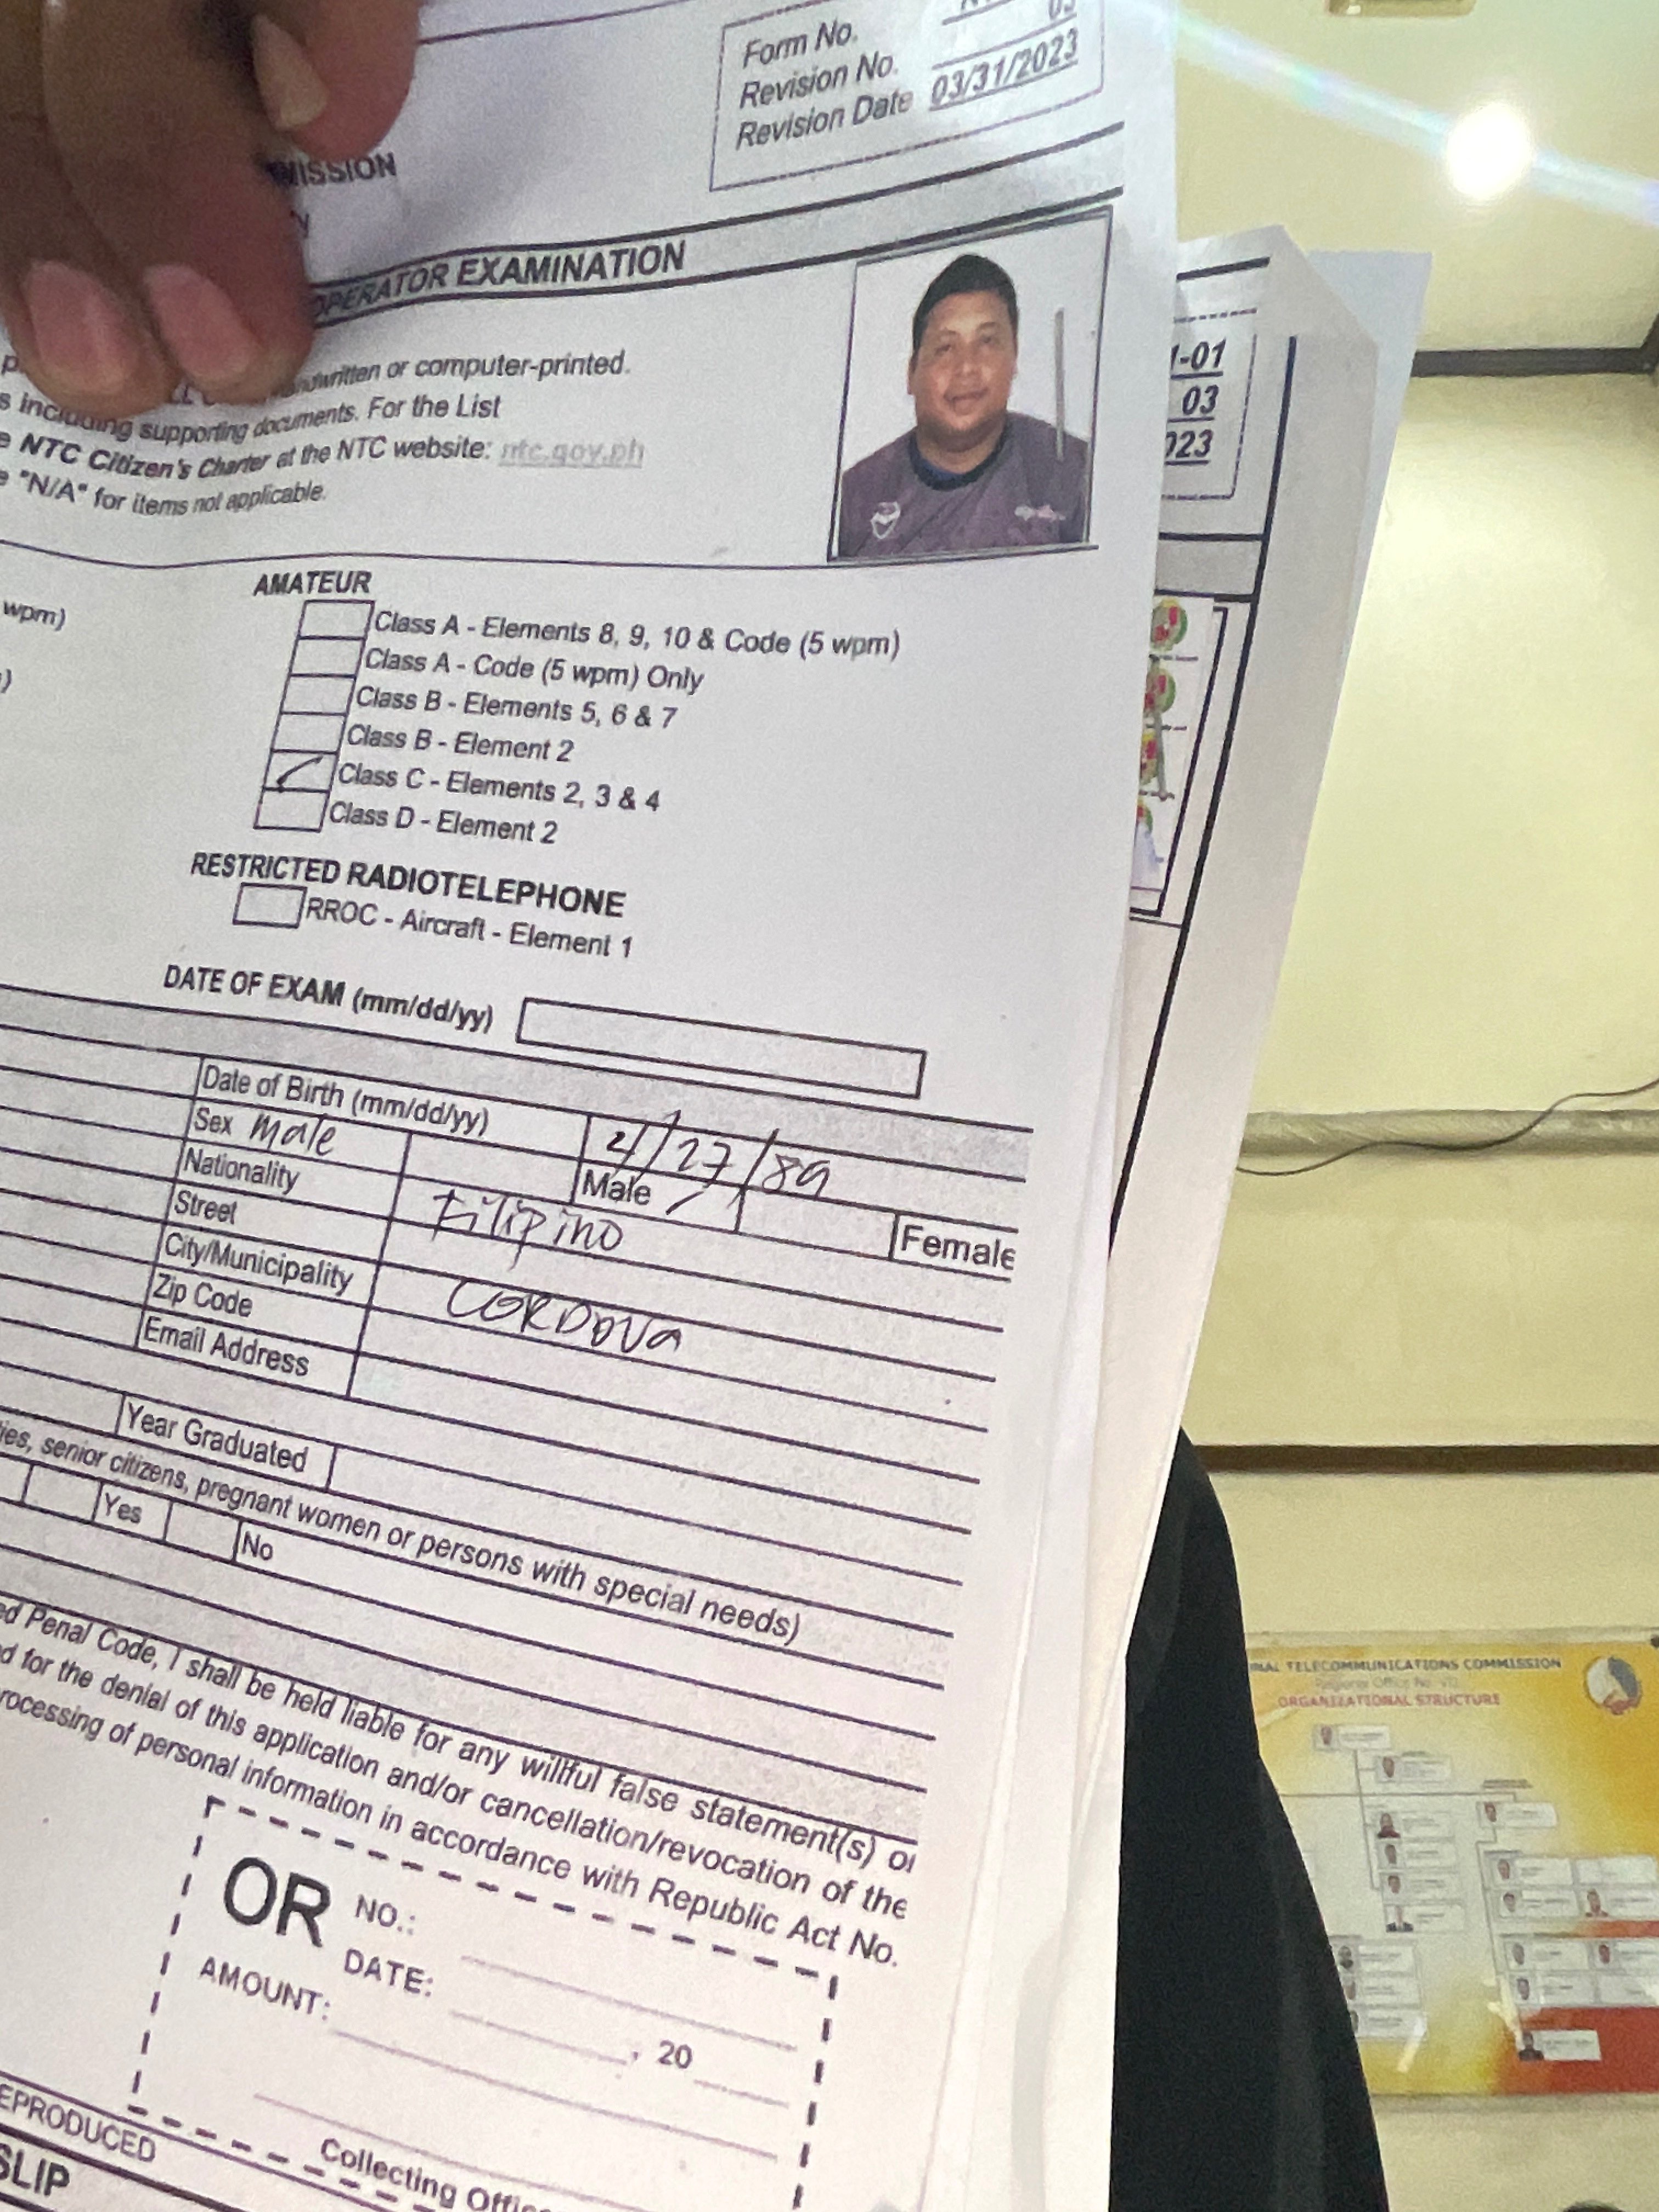 Form No.
03
Revision No.
Revision Date 03/31/2023
MISSION
OPERATOR EXAMINATION
handwritten or computer-printed.
s including supporting documents. For the List
e NTC Citizen's Charter at the NTC website: ntc.gov.ph
e "N/A" for items not applicable.
1-01
03
023
wpm)
AMATEUR
Class A - Elements 8, 9, 10 & Code (5 wpm)
Class A - Code (5 wpm) Only
Class B - Elements 5, 6 & 7
Class B - Element 2
Class C - Elements 2, 3 & 4
Class D - Element 2
RESTRICTED RADIOTELEPHONE
RROC - Aircraft - Element 1
DATE OF EXAM (mm/dd/yy)
Date of Birth (mm/dd/yy) 4/27/89
Sex male Male Female
Nationality Filipino
Street
City/Municipality CORDOVA
Zip Code
Email Address
Year Graduated
ies, senior citizens, pregnant women or persons with special needs)
Yes No
ed Penal Code, I shall be held liable for any willful false statement(s) or
d for the denial of this application and/or cancellation/revocation of the
rocessing of personal information in accordance with Republic Act No.
OR NO.:
DATE:
AMOUNT:
, 20
Collecting Offic
EPRODUCED
SLIP
NAL TELECOMMUNICATIONS COMMISSION
Regional Office No. VII
ORGANIZATIONAL STRUCTURE